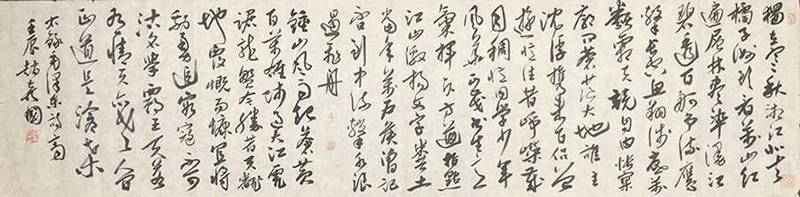 獨立寒秋湘江北去
橘子洲頭看萬山紅
遍層林盡染漫江
碧透百舸爭流鷹
擊長空魚翔淺底萬
類霜天競自由悵寥
廓問蒼茫大地誰主
沉浮攜來百侶曾
遊憶往昔崢嶸歲
月稠恰同學少年
風華正茂書生意
氣揮斥方遒指點
江山激揚文字糞土
當年萬戶侯曾記
否到中流擊水浪
遏飛舟
鍾山風雨起蒼黃
百萬雄師過大江虎
踞龍盤今勝昔天翻
地覆慨而慷宜將
剩勇追窮寇不可
沽名學霸王天若
有情天亦老人間
正道是滄桑
錄毛澤東詩
壬辰趙國